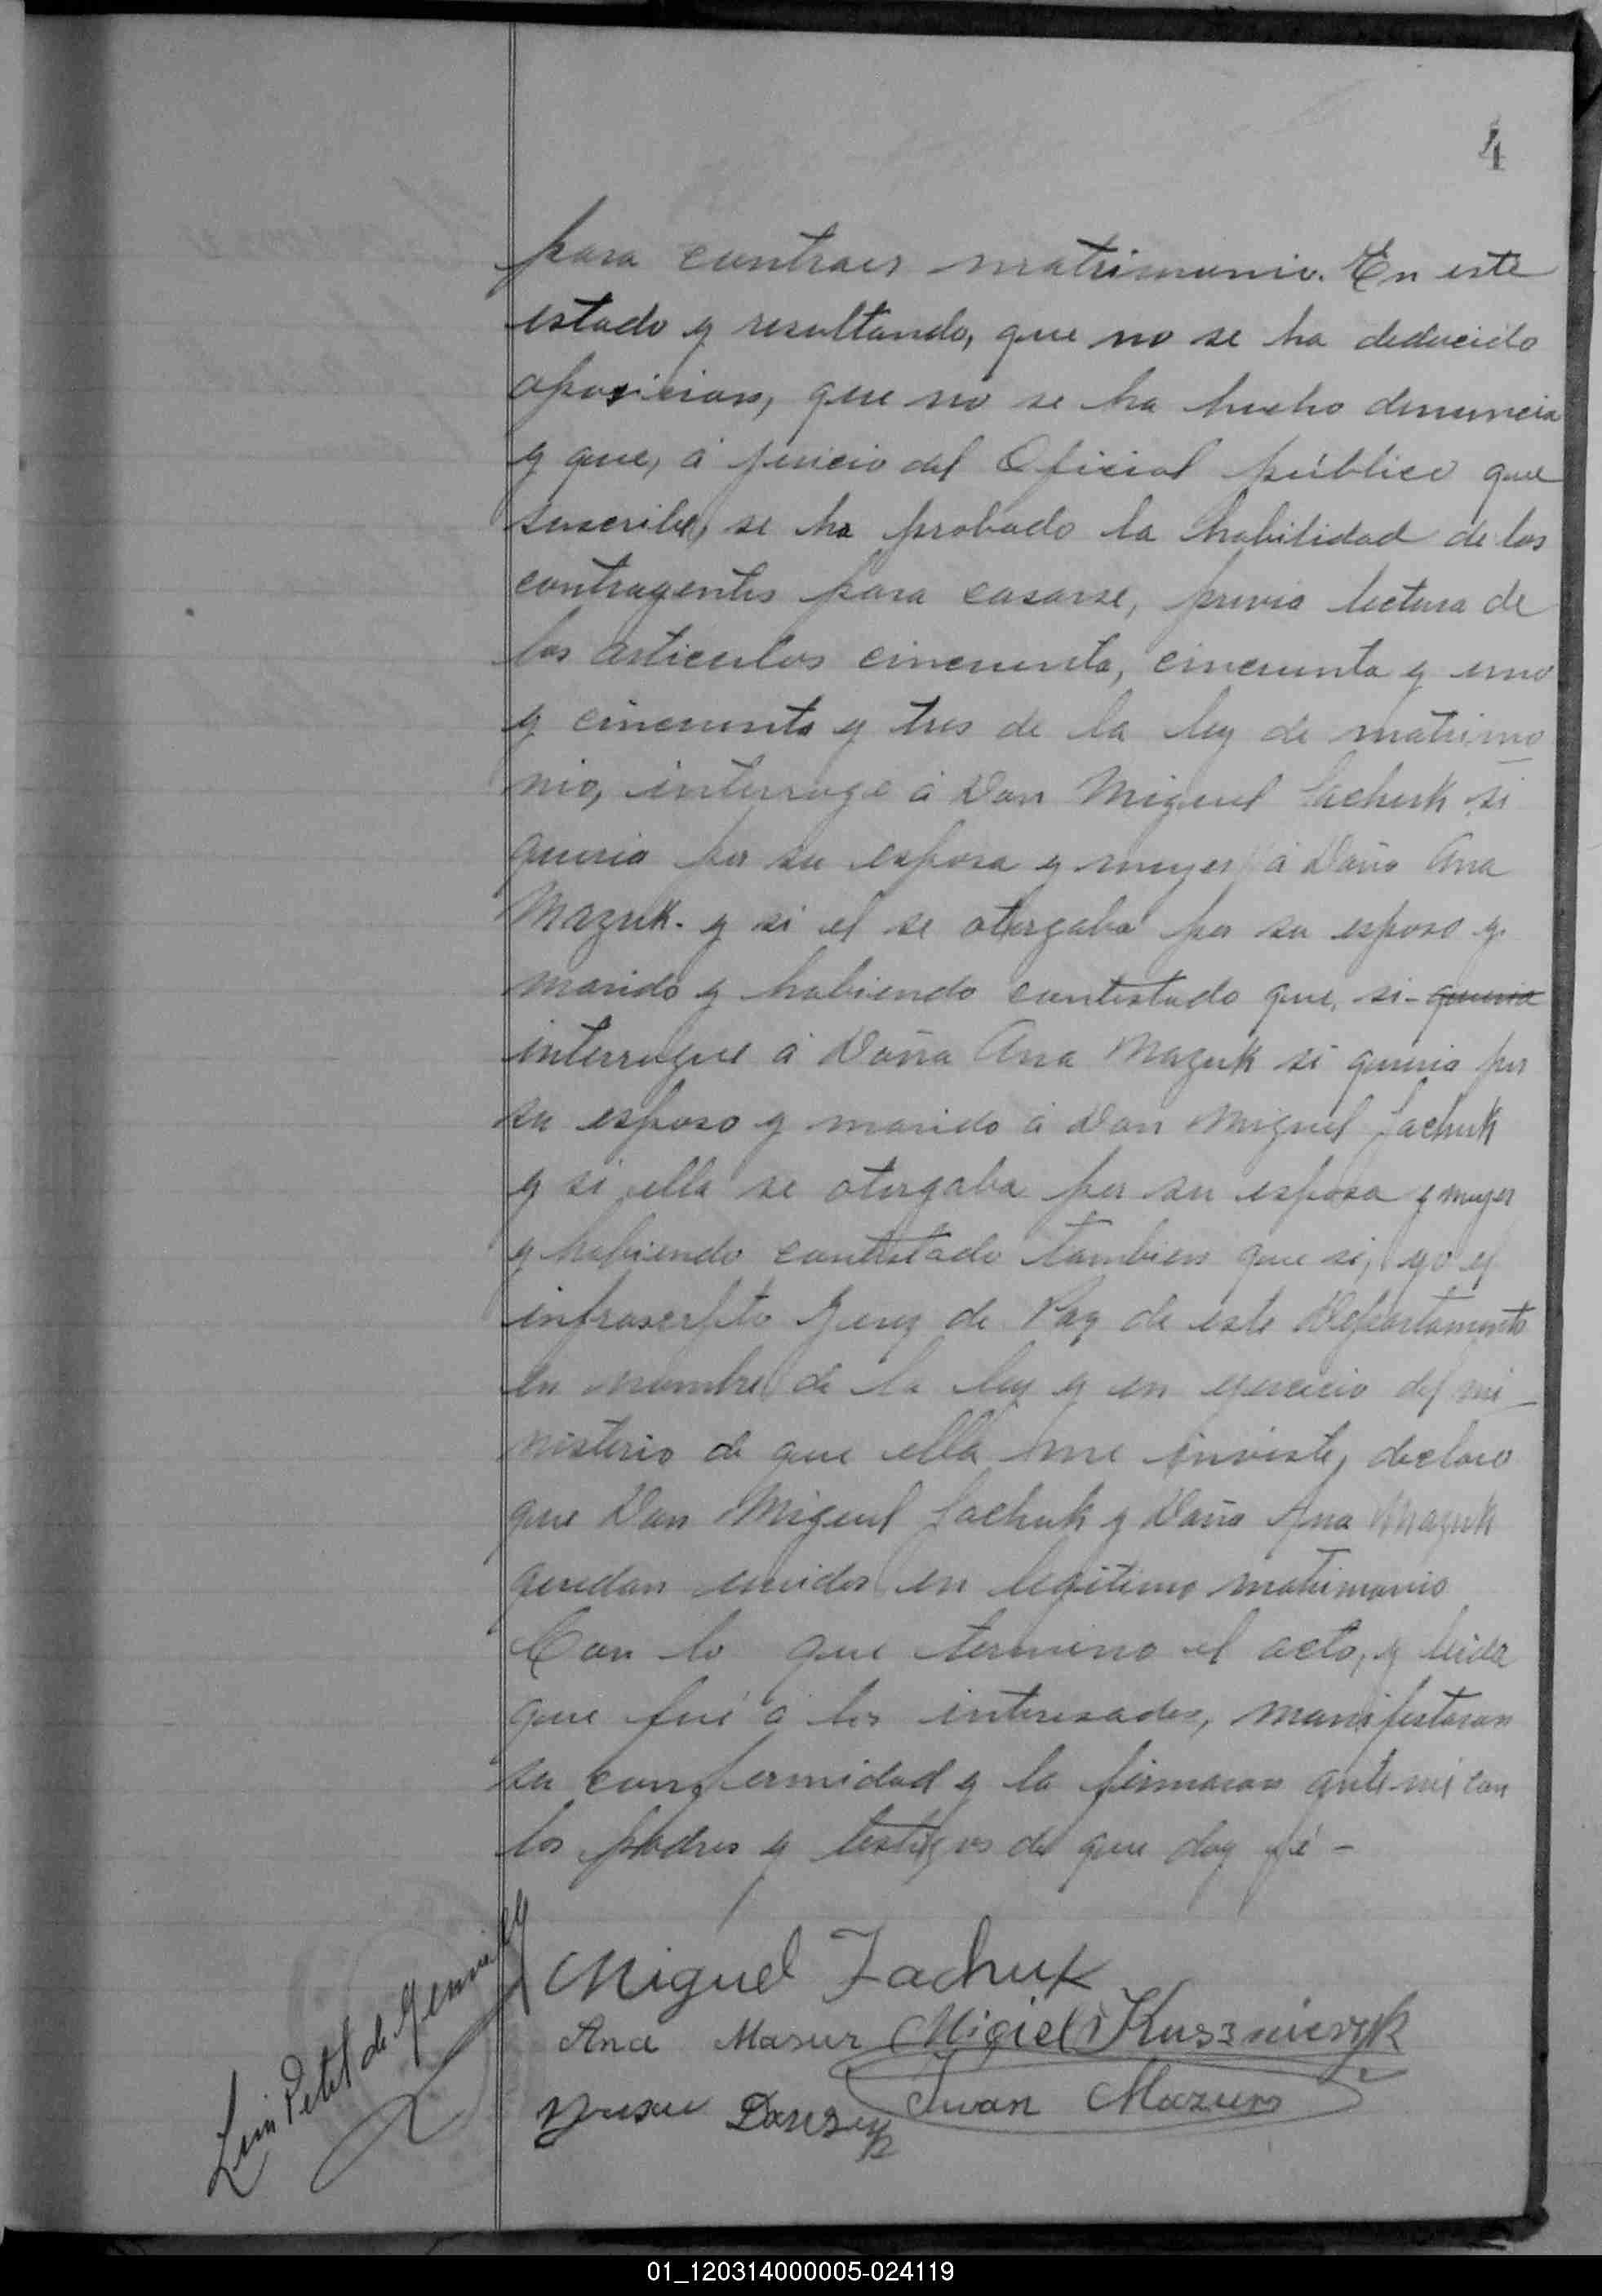 4
para contraer matrimonio. En este
estado y resultando, que no se ha deducido
oposicion, que no se ha hecho denuncia
y que, á juicio del Oficial público que
suscribe, se ha probado la habilidad de los
contrayentes para casarse, previa lectura de
los articulos cincuenta, cincuenta y uno
y cincuenta y tres de la ley de matrimo
nio, interrogé á Don Miguel Jachuk si
queria por su esposa y mujer á Doña Ana
Mazuk. y si el se otorgaba por su esposo y
marido y habiendo contestado que, si - queria
interrogué á Doña Ana Mazuk si queria por
su esposo y marido á Don Miguel Jachuk
y si ella se otorgaba por su esposa y mujer
y habiendo contestado tambien que si, yo el
infrascrpto Juez de Paz de este Departamento
en nombre de la ley y en ejercicio del mi_
nisterio de que ella me inviste, declaro
que Don Miguel Jachuk y Doña Ana Mazuk
quedan unidos en legitimo matrimonio
Con lo que termino el acto, y leida
que fué á los interesados, manifestaron
su conformidad y la firmaron ante mi con
los padres y testigos de que doy fé -
Miguel Jachuk
Ana Masur
Juan Mazur
Luis Petit de
01_120314000005-024119